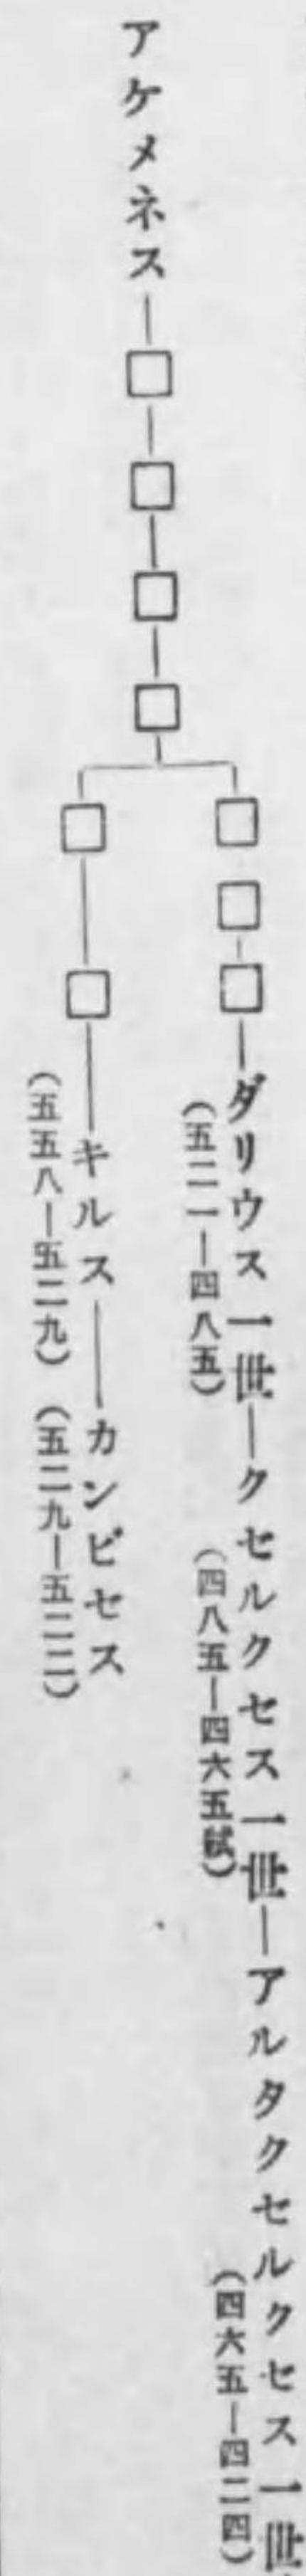 アケメネス―□―□―□―□
□ □―□―ダリウス一世―クセルクセス一世―アルタクセルクセス一世
(五二一―四八五) (四八五―四六五弑) (四六五―四二四)
□―□―キルス―カンビセス
(五五八―五二九) (五二九―五二二)